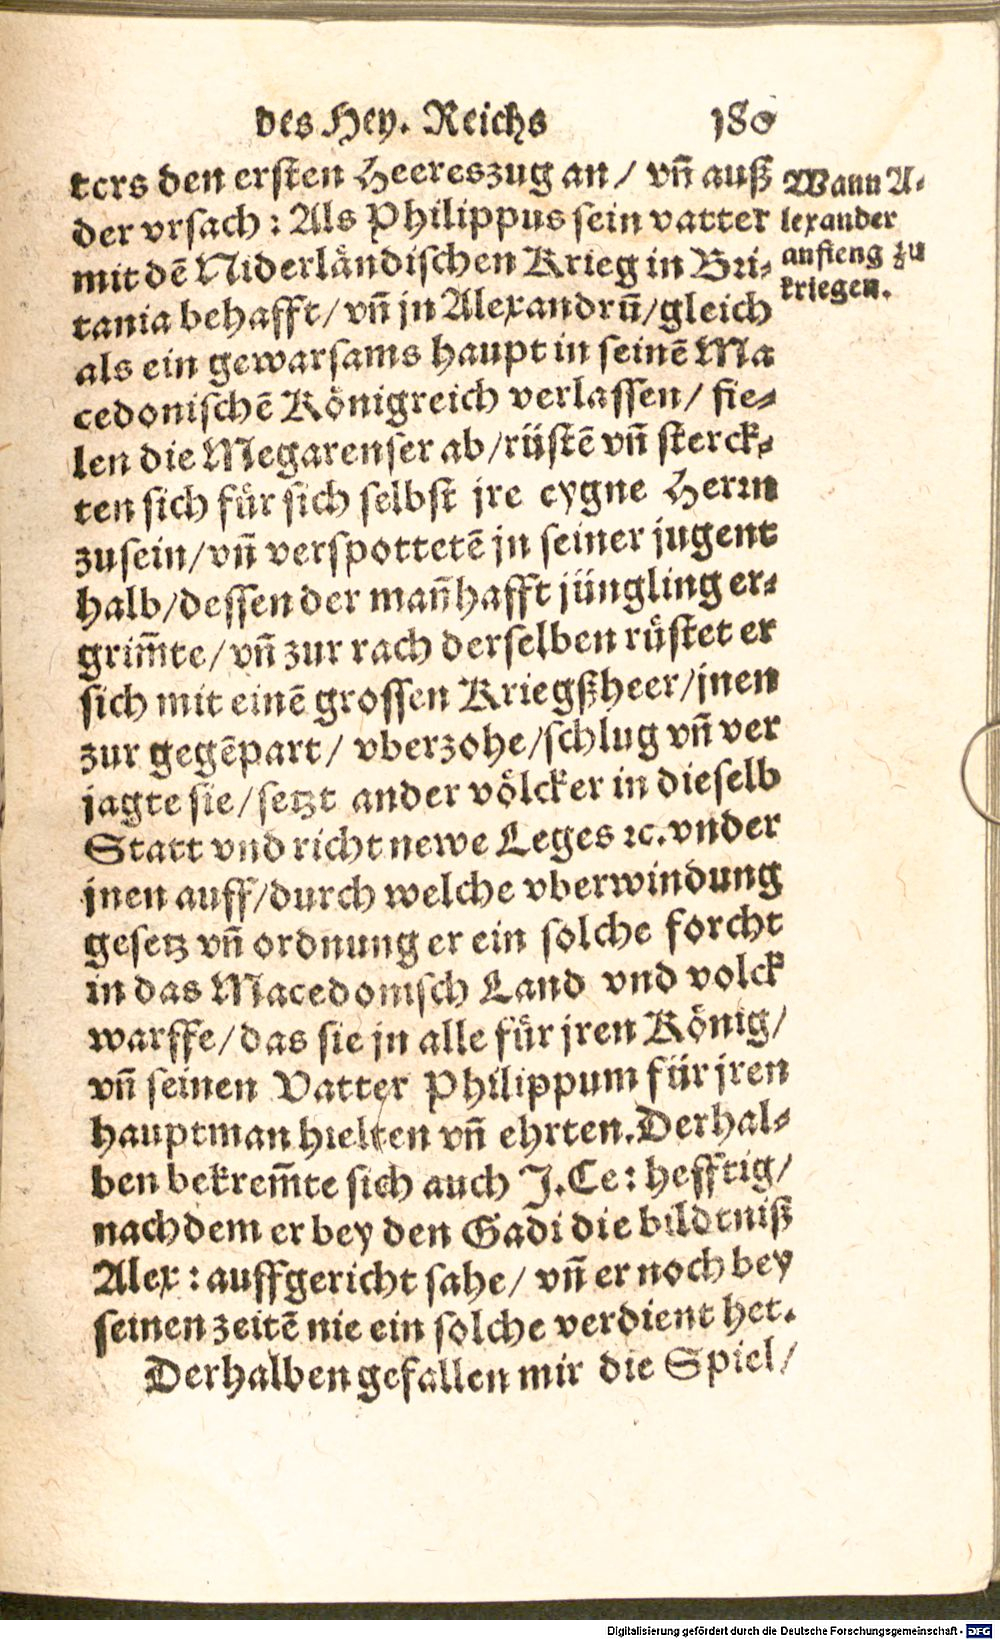 des Hey. Reichs 180
ters den ersten Heereszug an / vñ auß
der vrsach : Als Philippus sein vatter
mit dē Niderländischen Krieg in Bri-
tania behafft / vñ jn Alexandrū / gleich
als ein gewarsams haupt in seinē Ma
cedonischē Königreich verlassen / fie-
len die Megarenser ab / rüstē vñ sterck-
ten sich für sich selbst jre eygne Herrn
zusein / vñ verspottetē jn seiner jugent
halb / dessen der mañhafft jüngling er-
grim̃te / vñ zur rach derselben rüstet er
sich mit einē grossen Kriegßheer / jnen
zur gegēpart / vberzohe / schlug vñ ver
jagte sie / setzt ander völcker in dieselb
Statt vnd richt newe Leges ꝛc. vnder
jnen auff / durch welche vberwindung
gesetz vñ ordnung er ein solche forcht
in das Macedonisch Land vnd volck
warffe / das sie jn alle für jren König /
vñ seinen Vatter Philippum für jren
hauptman hielten vñ ehrten. Derhal-
ben bekrem̃te sich auch J. Ce : hefftig /
nachdem er bey den Gadi die bildtniß
Alex : auffgericht sahe / vñ er noch bey
seinen zeitē nie ein solche verdient het.
Derhalben gefallen mir die Spiel /
Wann A-
lexander
anfieng zu
kriegen.
Digitalisierung gefördert durch die Deutsche Forschungsgemeinschaft - DFG